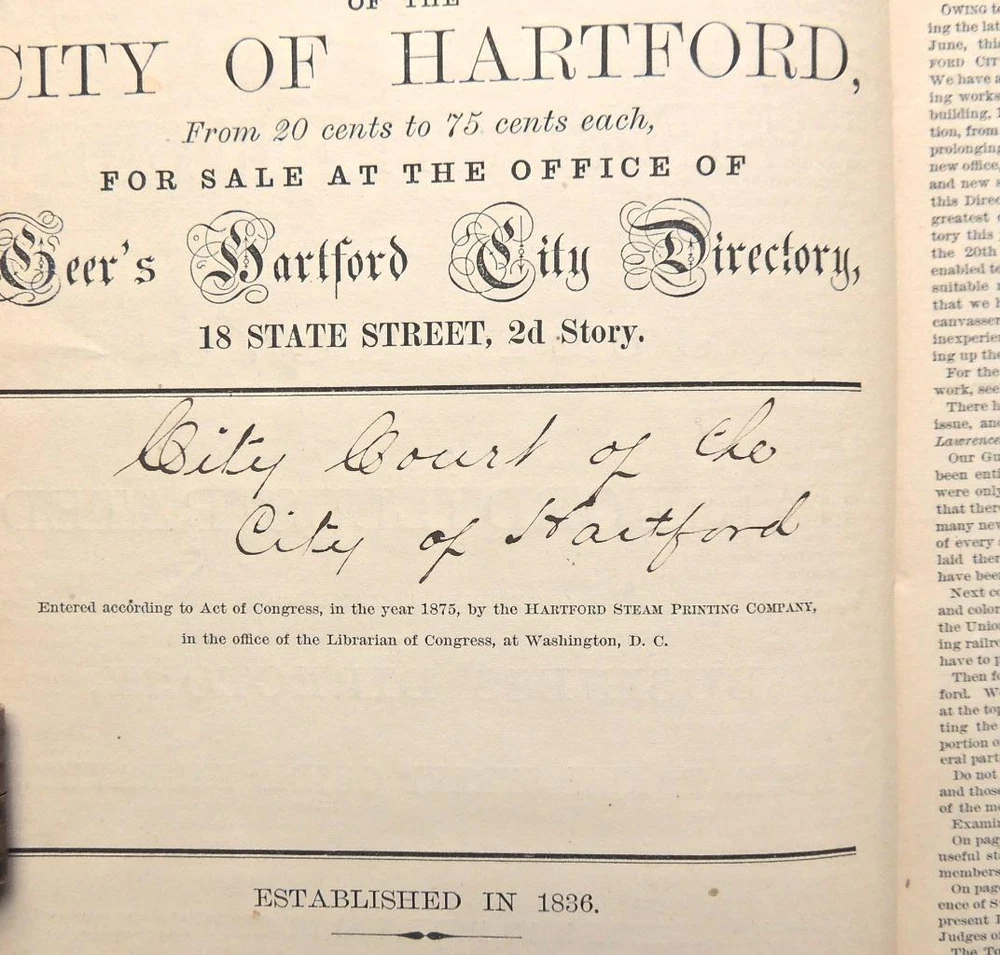 OF THE
CITY OF HARTFORD,
From 20 cents to 75 cents each,
FOR SALE AT THE OFFICE OF
Geer's Hartford City Directory,
18 STATE STREET, 2d Story.
City Court of the
City of Hartford
Entered according to Act of Congress, in the year 1875, by the HARTFORD STEAM PRINTING COMPANY,
in the office of the Librarian of Congress, at Washington, D. C.
ESTABLISHED IN 1836.
OWING to
ing the lat
June, thi
FORD CIT
We have a
ing works
building,
tion, from
prolonging
new office,
and new s
this Direc
greatest
tory this
the 20th
enabled to
suitable
that we h
canvasser
inexperie
ing up the
For the
work, see
There h
issue, and
Lawrence
Our Gu
been enti
were only
that ther
many new
of every
laid ther
have been
Next co
and color
the Union
ing railro
have to p
Then fo
ford. W
at the top
ting the
portion o
eral part
Do not
and those
of the mo
Examin
On pag
useful sta
members
On page
ence of S
present
Judges of
The To